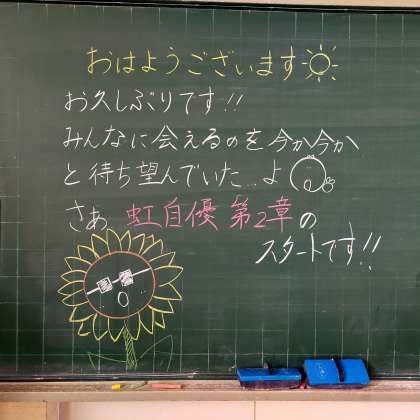 おはようございます
お久しぶりです!!
みんなに会えるのを今か今か
と待ち望んでいた…よ
さあ 虹自優 第2章の
スタートです!!